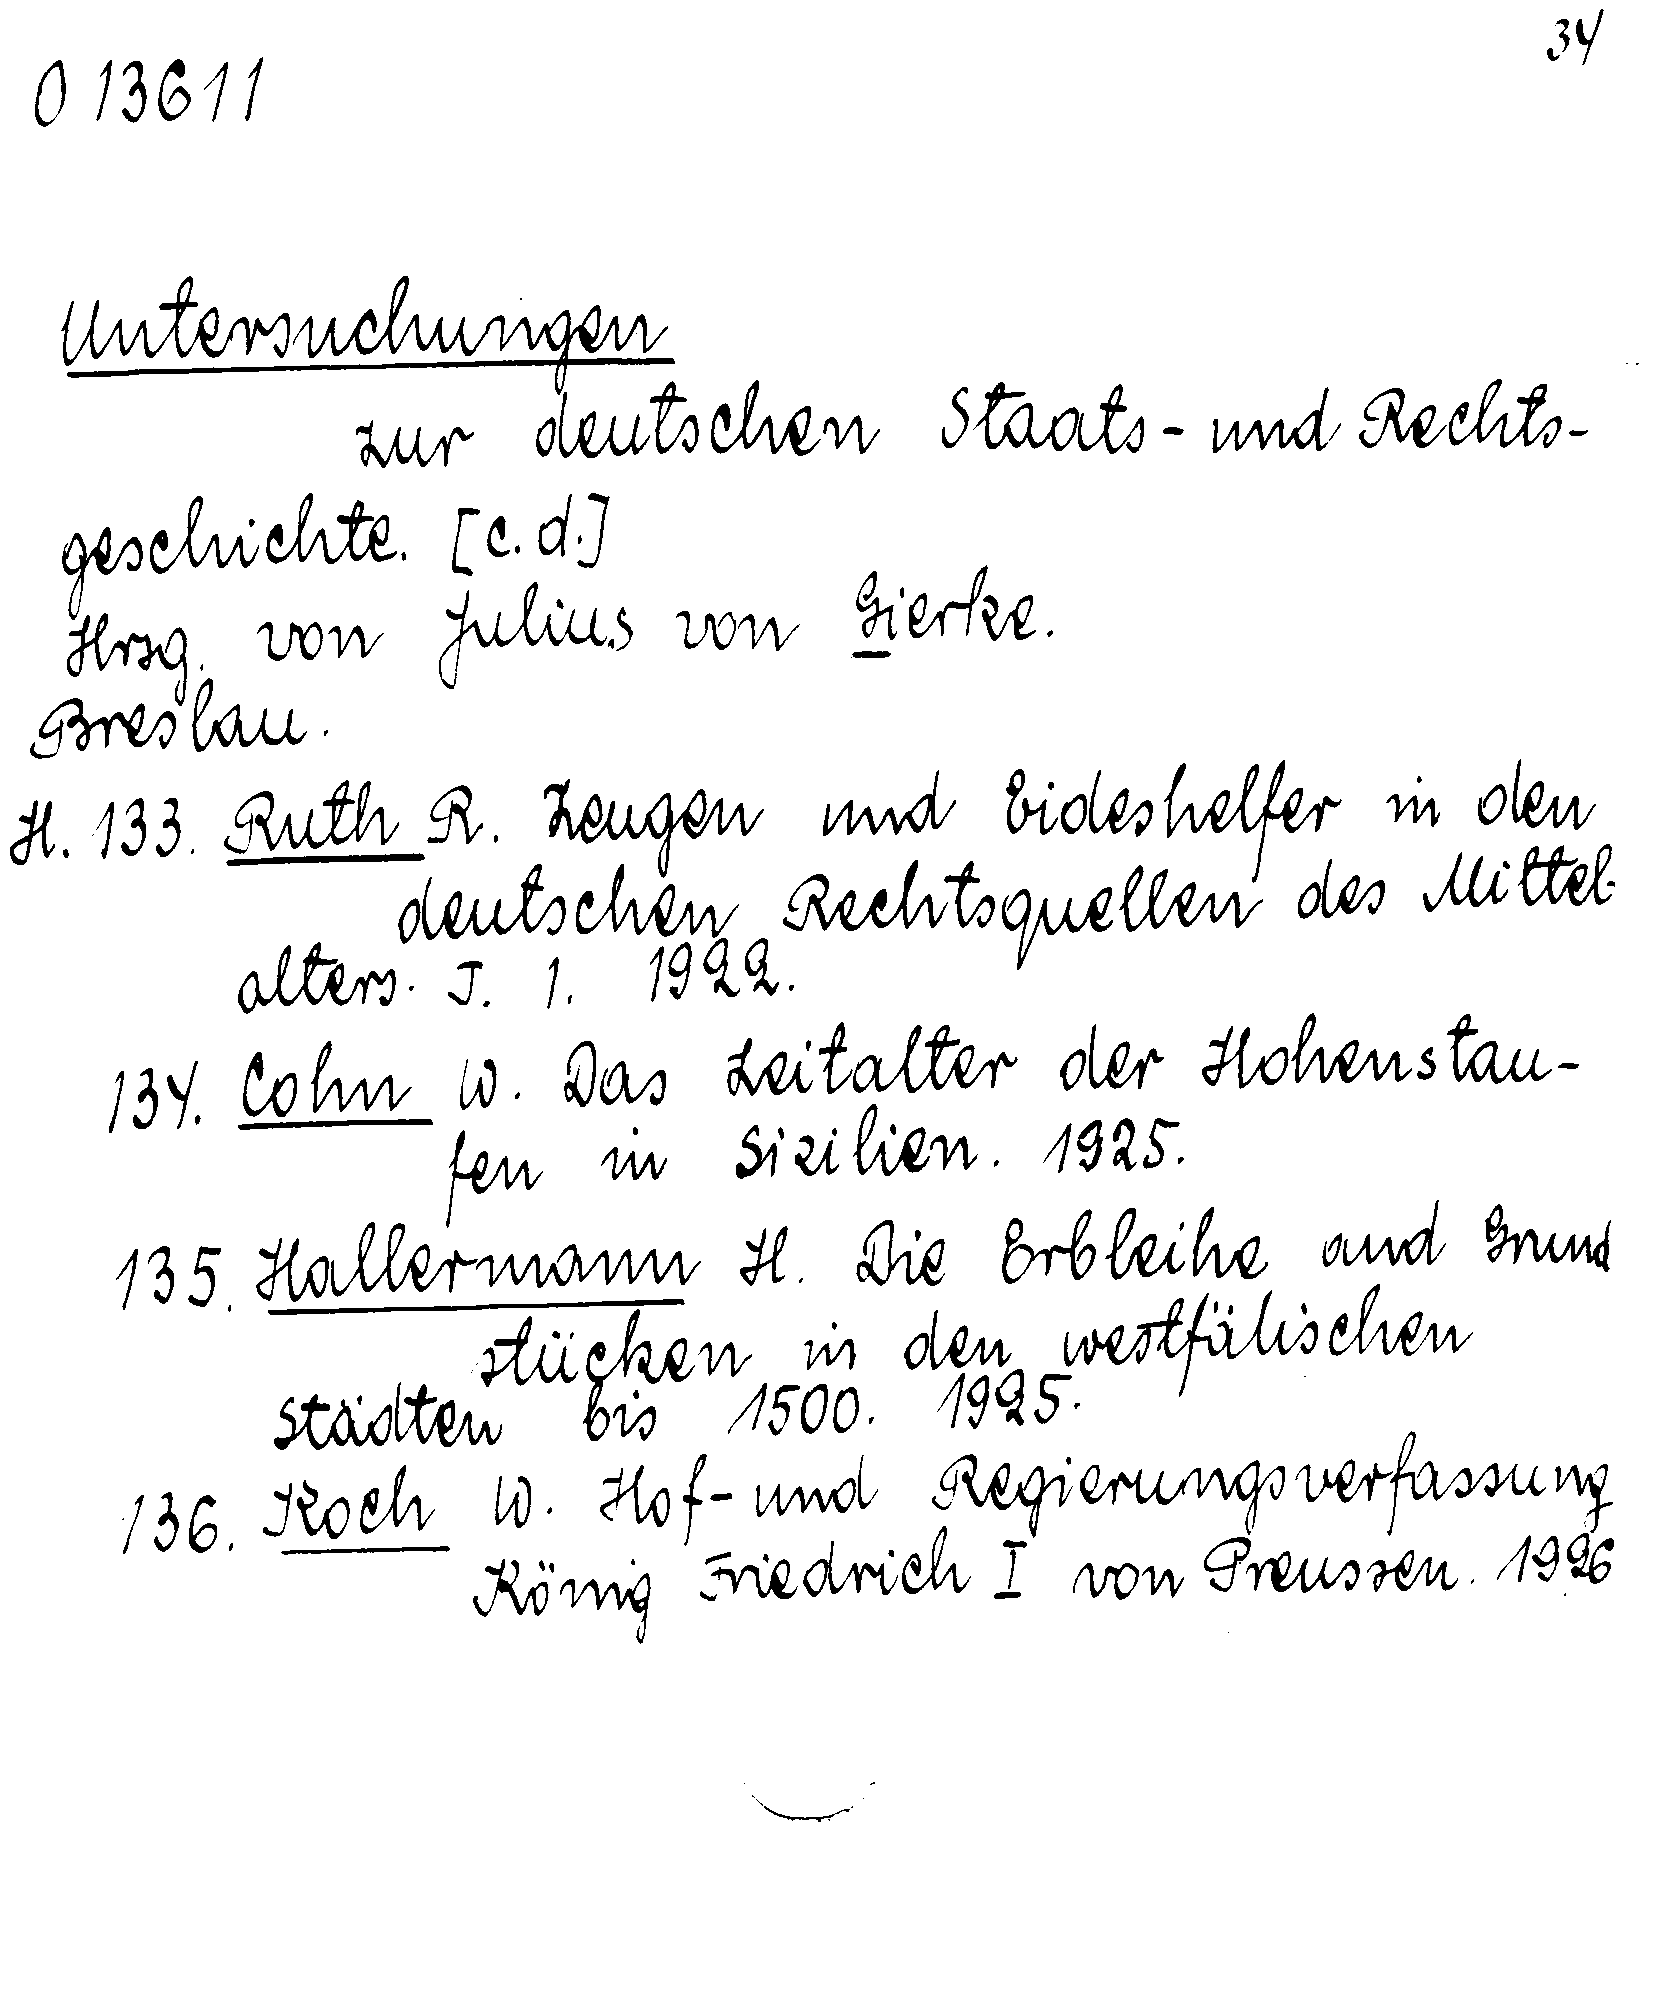 34
O 13611
Untersuchungen
zur deutschen Staats- und Rechts-
geschichte. [c.d.]
Hrsg. von Julius von Gierke.
Breslau.
H. 133. Ruth R. Zeugen und Eideshelfer in den
deutschen Rechtsquellen des Mittel-
alters. T. 1. 1922.
134. Cohn W. Das Zeitalter der Hohenstau-
fen in Sizilien. 1925.
135. Hallermann H. Die Erbleihe and Grund
stücken in den westfälischen
Städten bis 1500. 1925.
136. Koch W. Hof- und Regierungsverfassung
König Friedrich I von Preussen. 1926